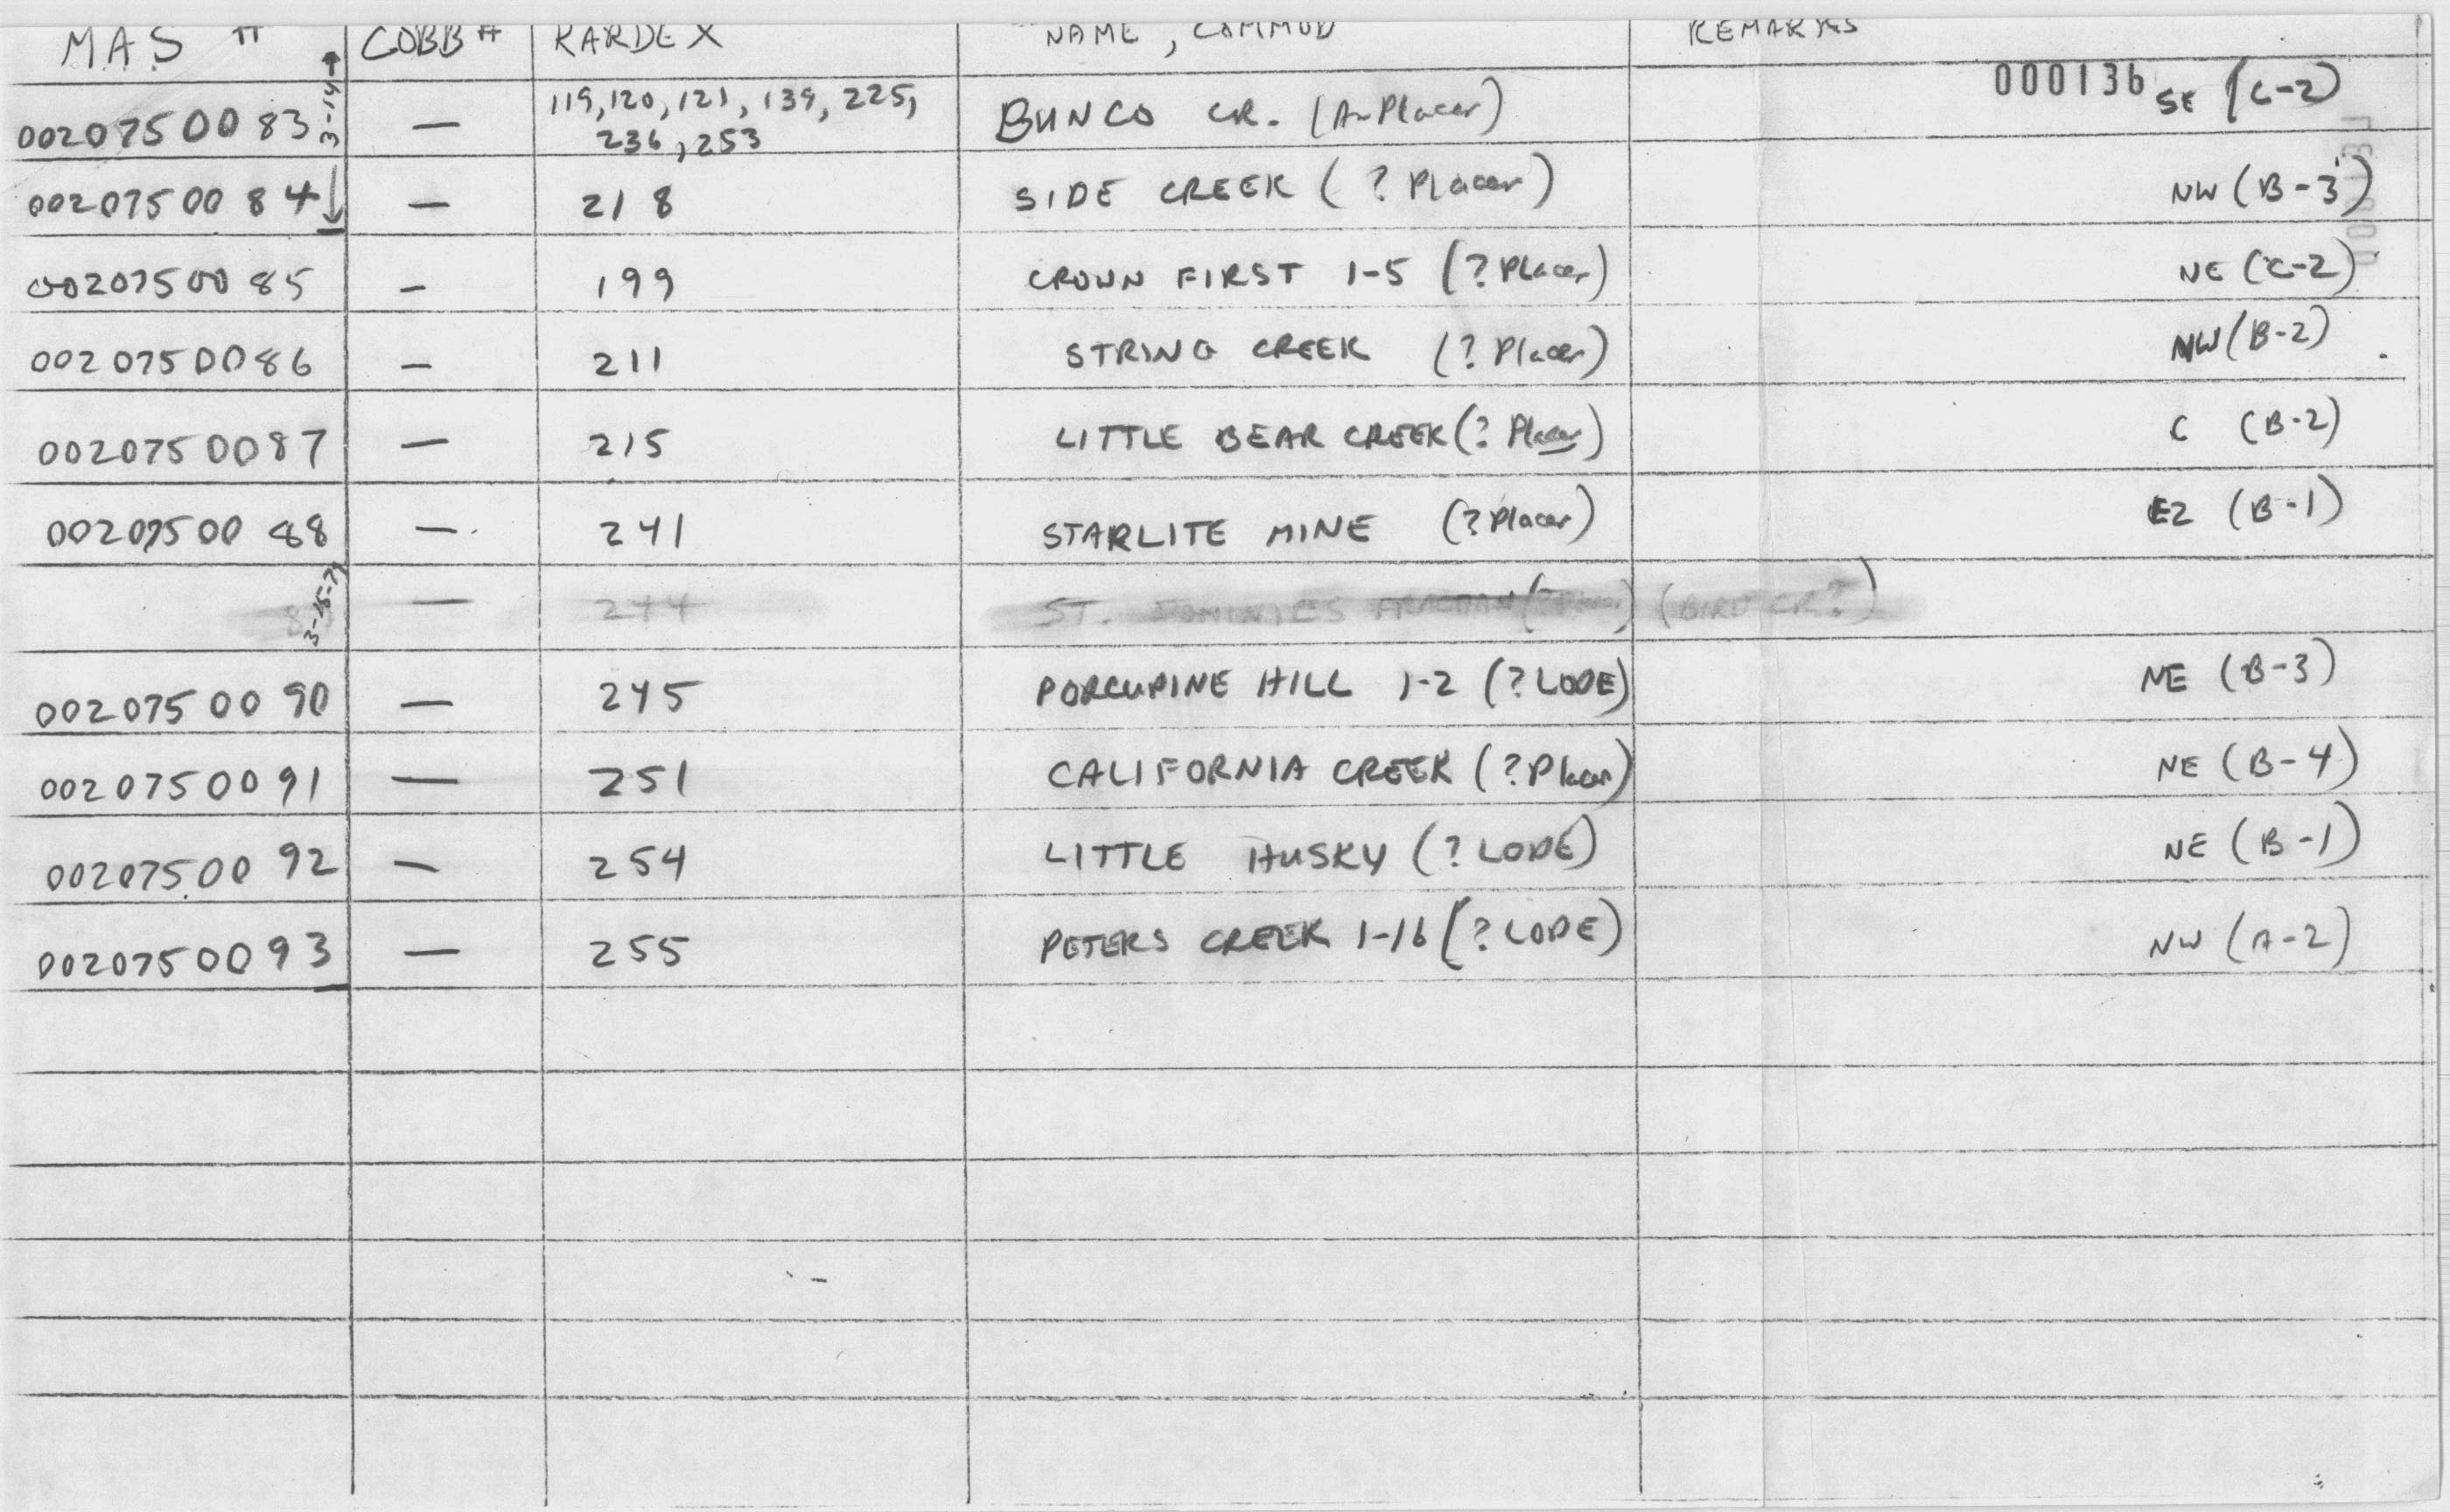 MAS # COBB # KARDEX NAME, COMMOD REMARKS
000136
0020750083 3-14 — 119, 120, 121, 139, 225, BUNCO CR. (Au Placer) SE (C-2)
236, 253
0020750084 — 218 SIDE CREEK (? Placer) NW (B-3)
0020750085 - 199 CROWN FIRST 1-5 (? Placer) NE (C-2)
0020750086 - 211 STRING CREEK (? Placer) NW (B-2)
0020750087 — 215 LITTLE BEAR CREEK (? Placer) C (B-2)
0020750088 — 241 STARLITE MINE (? Placer) EZ (B-1)
— 244 ST. DOMINICS FRACTION (? Placer) (BIRD CR?)
0020750090 — 245 PORCUPINE HILL 1-2 (? LODE) NE (B-3)
0020750091 — 251 CALIFORNIA CREEK (? Placer) NE (B-4)
0020750092 — 254 LITTLE HUSKY (? LODE) NE (B-1)
0020750093 — 255 PETERS CREEK 1-16 (? LODE) NW (A-2)